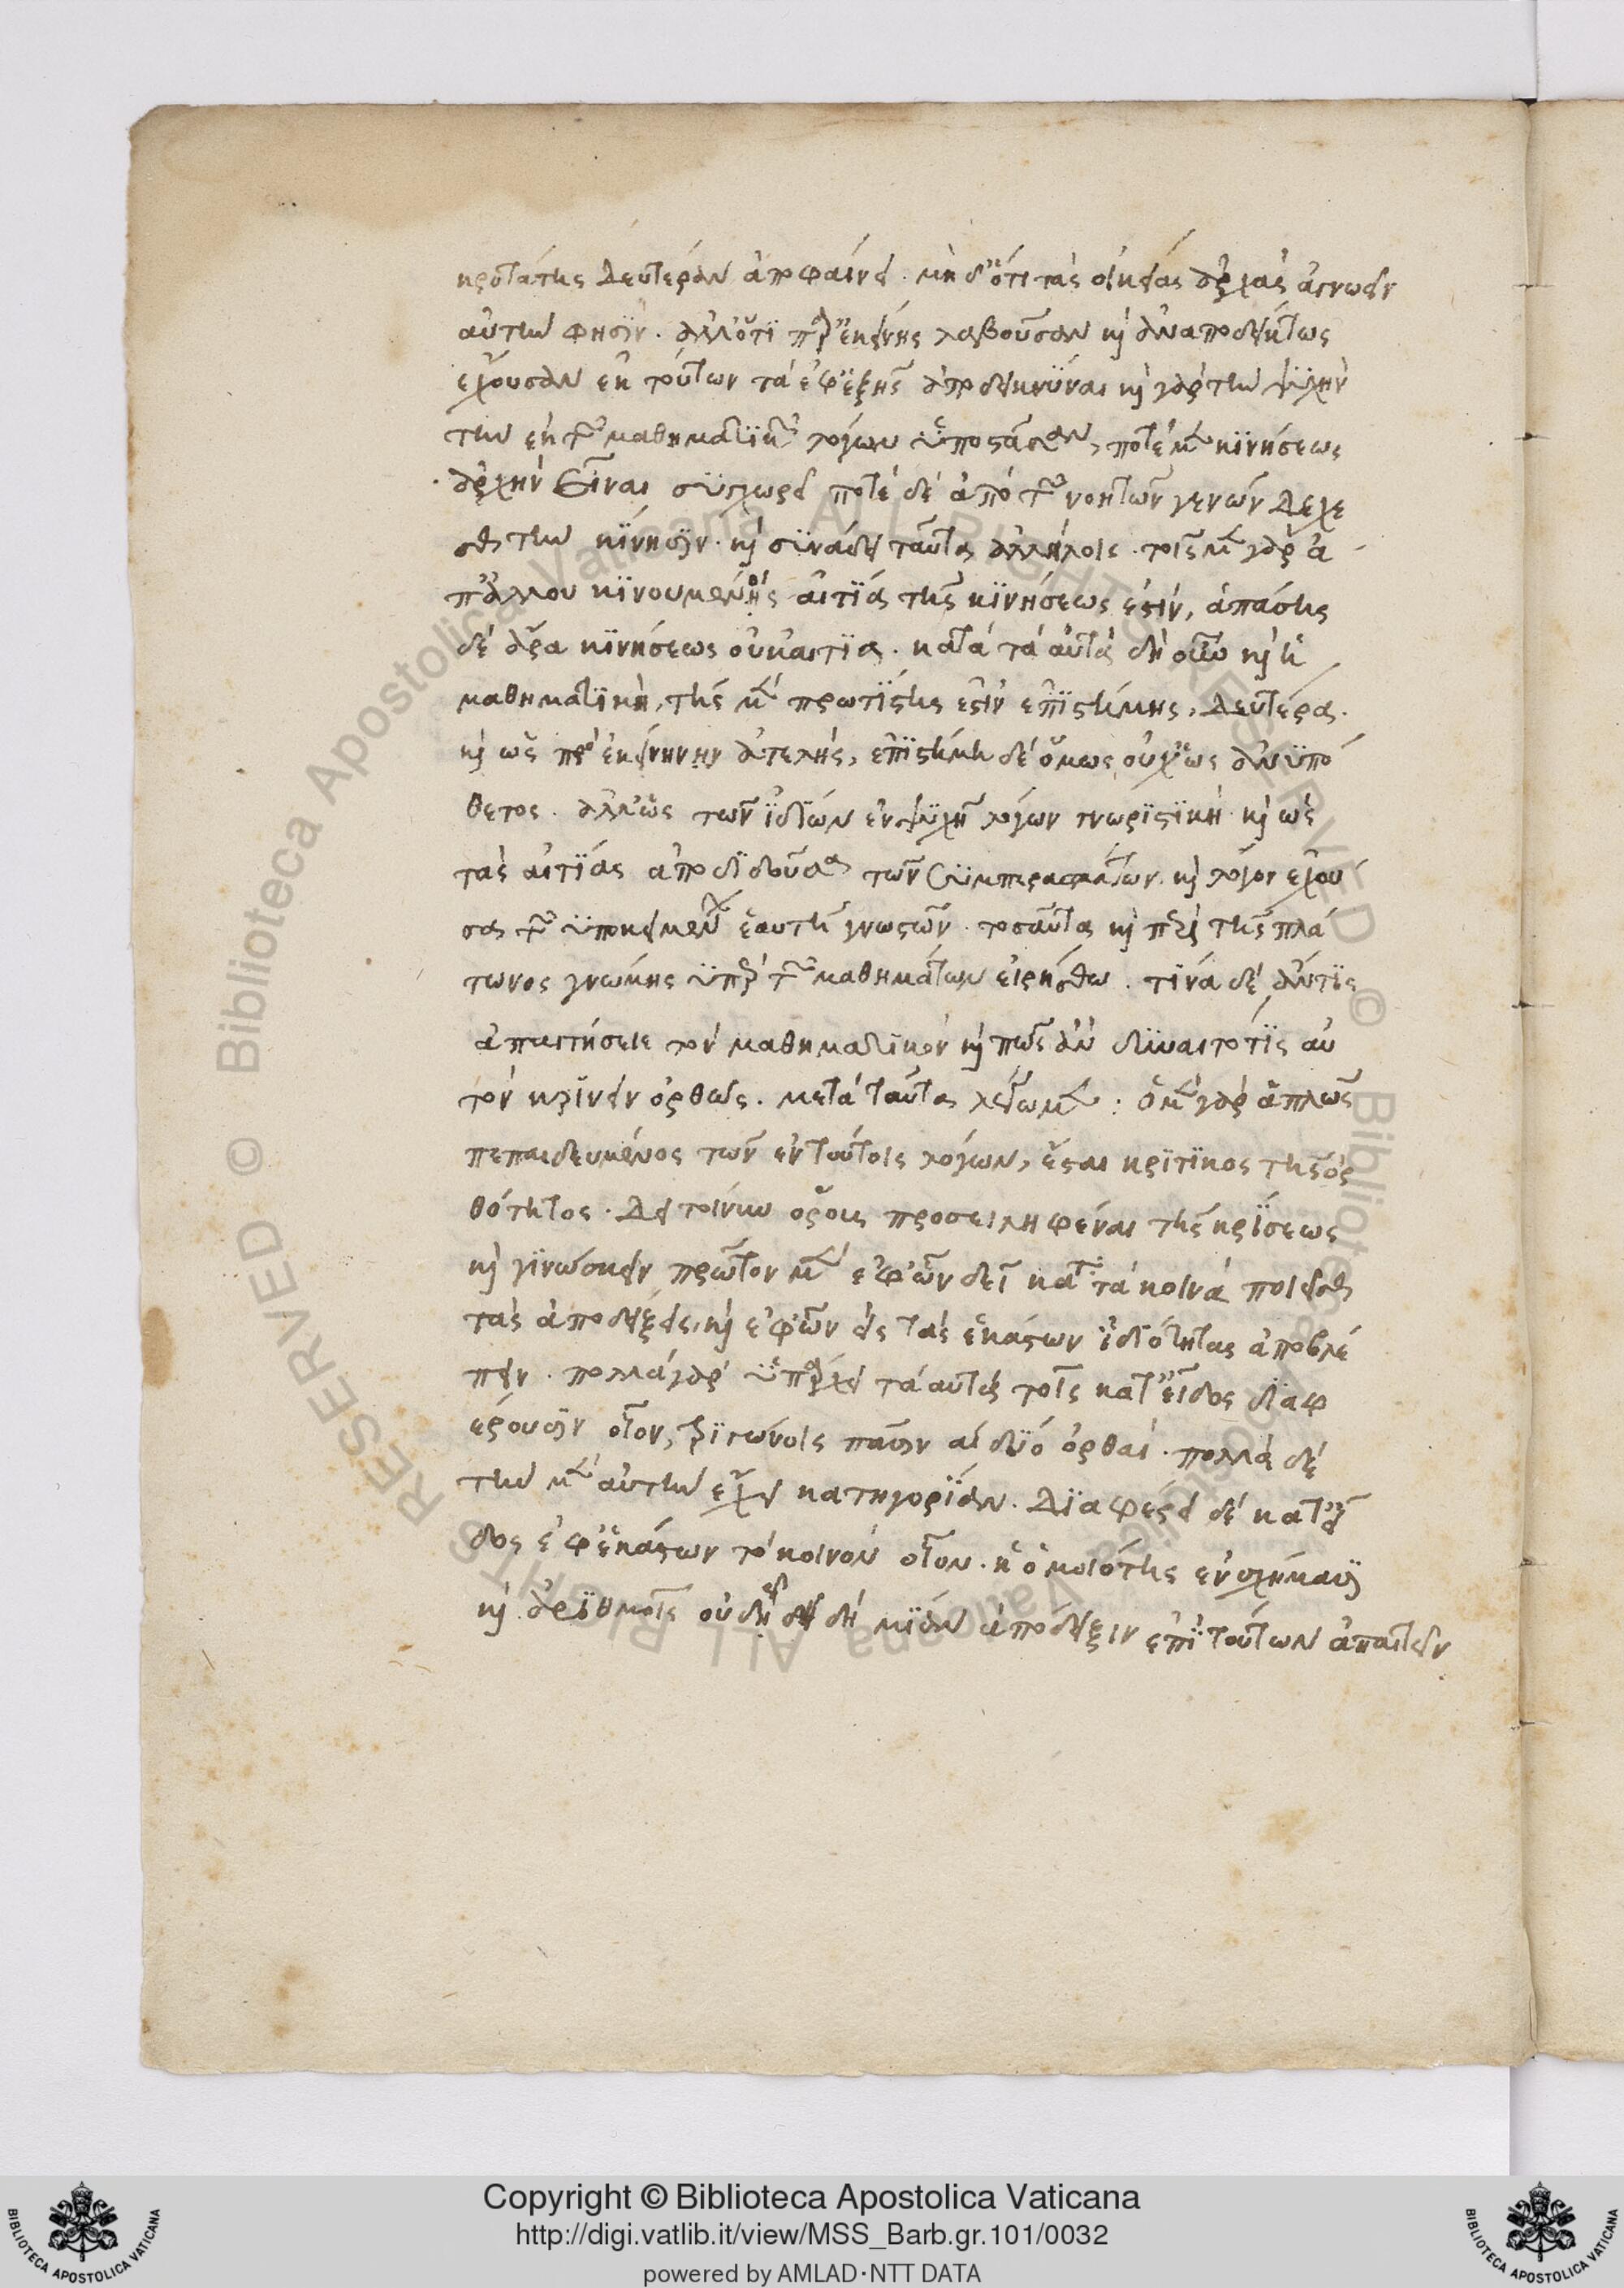 κροτάτης δευτέραν ἀποφαίνει. μὴ δ' ὅτι τὰς οἰκείας ἀρχὰς ἀγνοεῖν
αὐτὴν φησὶν. ἀλλ' ὅτι παρ' ἐκείνης λαβοῦσαν καὶ ἀναποδείκτως
ἔχουσαν ἐκ τούτων τὰ ἐφεξῆς ἀποδεικνύναι καὶ γὰρ τὴν ψυχὴν
τὴν ἐκ τῶν μαθηματικῶν λόγων ὑποστᾶσαν, ποτὲ μὲν κινήσεως
ἀρχὴν εἶναι συγχωρεῖ ποτὲ δὲ ἀπὸ τῶν νοητῶν γενῶν δέχε
σθαι τὴν κίνησιν. καὶ συνάδει ταῦτα ἀλλήλοις. τοῖς μὲν γὰρ ὑ
π' ἄλλου κινουμένοις αἰτία τῆς κινήσεως ἐστίν, ἁπάσης
δὲ ἄρα κινήσεως οὐκ αἰτία. κατὰ τὰ αὐτὰ δὴ οὖν καὶ ἡ
μαθηματικὴ, τῆς μὲν πρωτίστης ἐστὶν ἐπιστήμης, δευτέρα.
καὶ ὡς πρὸ ἐκείνην ἀτελὴς, ἐπιστήμη δὲ ὅμως οὐχ ὡς ἀνυπό
θετος. ἀλλ' ὡς τῶν ἰδίων ἐν ψυχῇ λόγων γνωριστικὴ καὶ ὡς
τὰς αἰτίας ἀποδιδοῦσα τῶν συμπερασμάτων. καὶ λόγον ἔχου
σα τῶν ὑποκειμένων ἑαυτῇ γνωστῶν. τοσαῦτα καὶ περὶ τῆς πλά
τωνος γνώμης ὑπὲρ τῶν μαθημάτων εἰρήσθω. τίνα δὲ ἄν τις
ἀπαιτήσειε τὸν μαθηματικὸν καὶ πῶς ἂν δύναιτο τίς αὐ
τὸν κρίνειν ὀρθῶς. μετὰ ταῦτα λέγωμεν: ὁ μὲν γὰρ ἁπλῶς
πεπαιδευμένος τῶν ἐν τούτοις λόγων, ἔσται κριτικος τῆς ὀρ
θότητος. δεῖ τοίνυν ὅρους προσειληφέναι τῆς κρίσεως
καὶ γινώσκειν πρῶτον μὲν ἐφ' ὧν δεῖ κατὰ τὰ κοινὰ ποιεῖσθαι
τὰς ἀποδείξεις, καὶ ἐφ' ὧν εἰς τὰς ἑκάστων ἰδιότητας ἀποβλέ
πειν. πολλὰ γὰρ ὑπάρχει τὰ αὐτὰ τοῖς κατ' εἶδος διαφ
έρουσιν οἷον, τριγώνοις πᾶσιν αἱ δύο ὀρθαὶ. πολλὰ δὲ
τὴν μὲν αὐτὴν ἔχει κατηγορίαν. διαφέρει δὲ κατ' εἶ
δος ἐφ' ἑκάστων τὸ κοινὸν οἷον. ἡ ὁμοιότης ἐν σχήμασι
καὶ ἀριθμοῖς οὐ δὴ μίαν ἀπόδειξιν ἐπὶ τούτων ἀπαιτεῖν